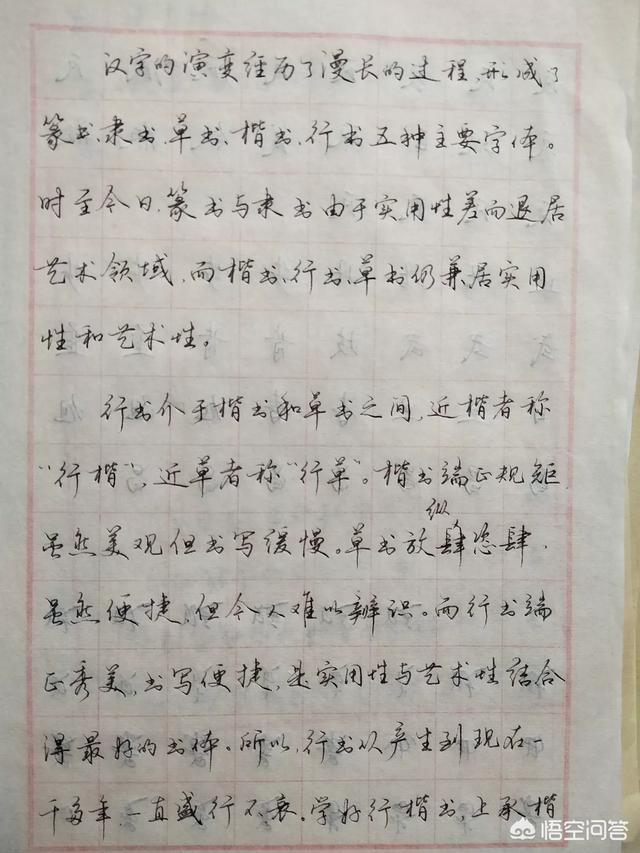 汉字的演变经历了漫长的过程,形成了
篆书、隶书、草书、楷书、行书五种主要字体。
时至今日,篆书与隶书由于实用性差而退居
艺术领域,而楷书、行书、草书仍兼居实用
性和艺术性。
行书介于楷书和草书之间,近楷者称
“行楷”,近草者称“行草”。楷书端正规矩,
虽然美观但书写缓慢。草书放肆恣肆,
纵
虽然便捷,但令人难以辨识。而行书端
正秀美,书写便捷,是实用性与艺术性结合
得最好的书体。所以,行书从产生到现在一
千多年,一直盛行不衰。学好行楷书,上承楷
悟空问答